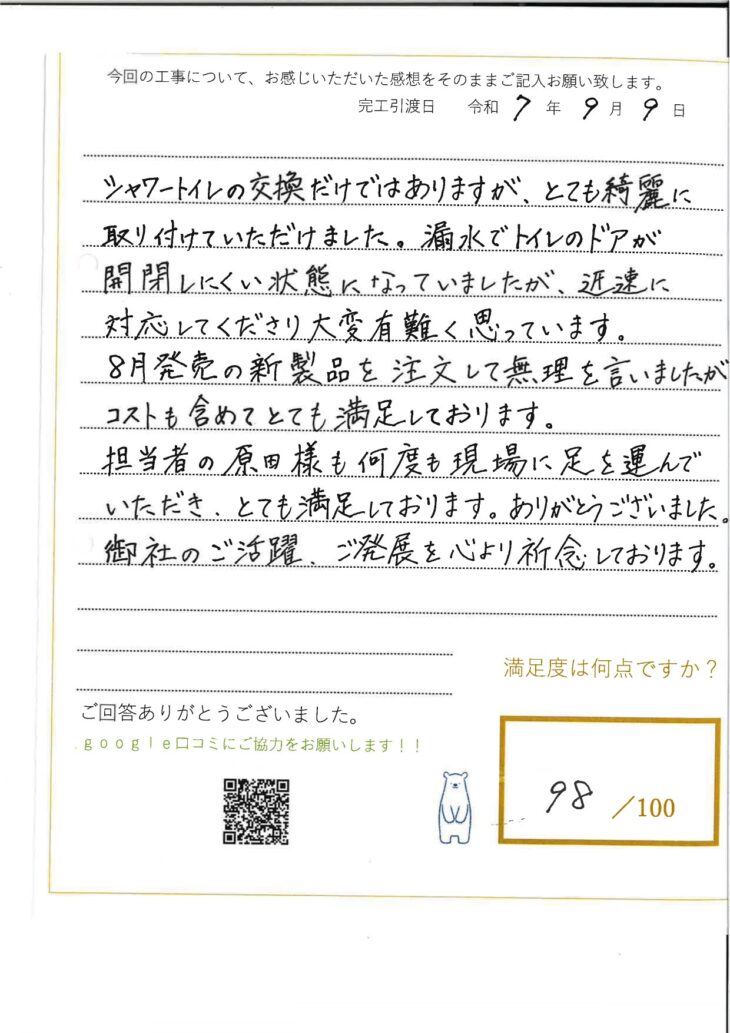 今回の工事について、お感じいただいた感想をそのままご記入お願い致します。
完工引渡日　令和 7 年 9 月 9 日
シャワートイレの交換だけではありますが、とても綺麗に
取り付けていただけました。漏水でトイレのドアが
開閉しにくい状態になっていましたが、迅速に
対応してくださり大変有難く思っています。
8月発売の新製品を注文して無理を言いましたが
コストも含めてとても満足しております。
担当者の原田様も何度も現場に足を運んで
いただき、とても満足しております。ありがとうございました。
御社のご活躍、ご発展を心より祈念しております。
満足度は何点ですか？
ご回答ありがとうございました。
google口コミにご協力をお願いします！！
98 ／100